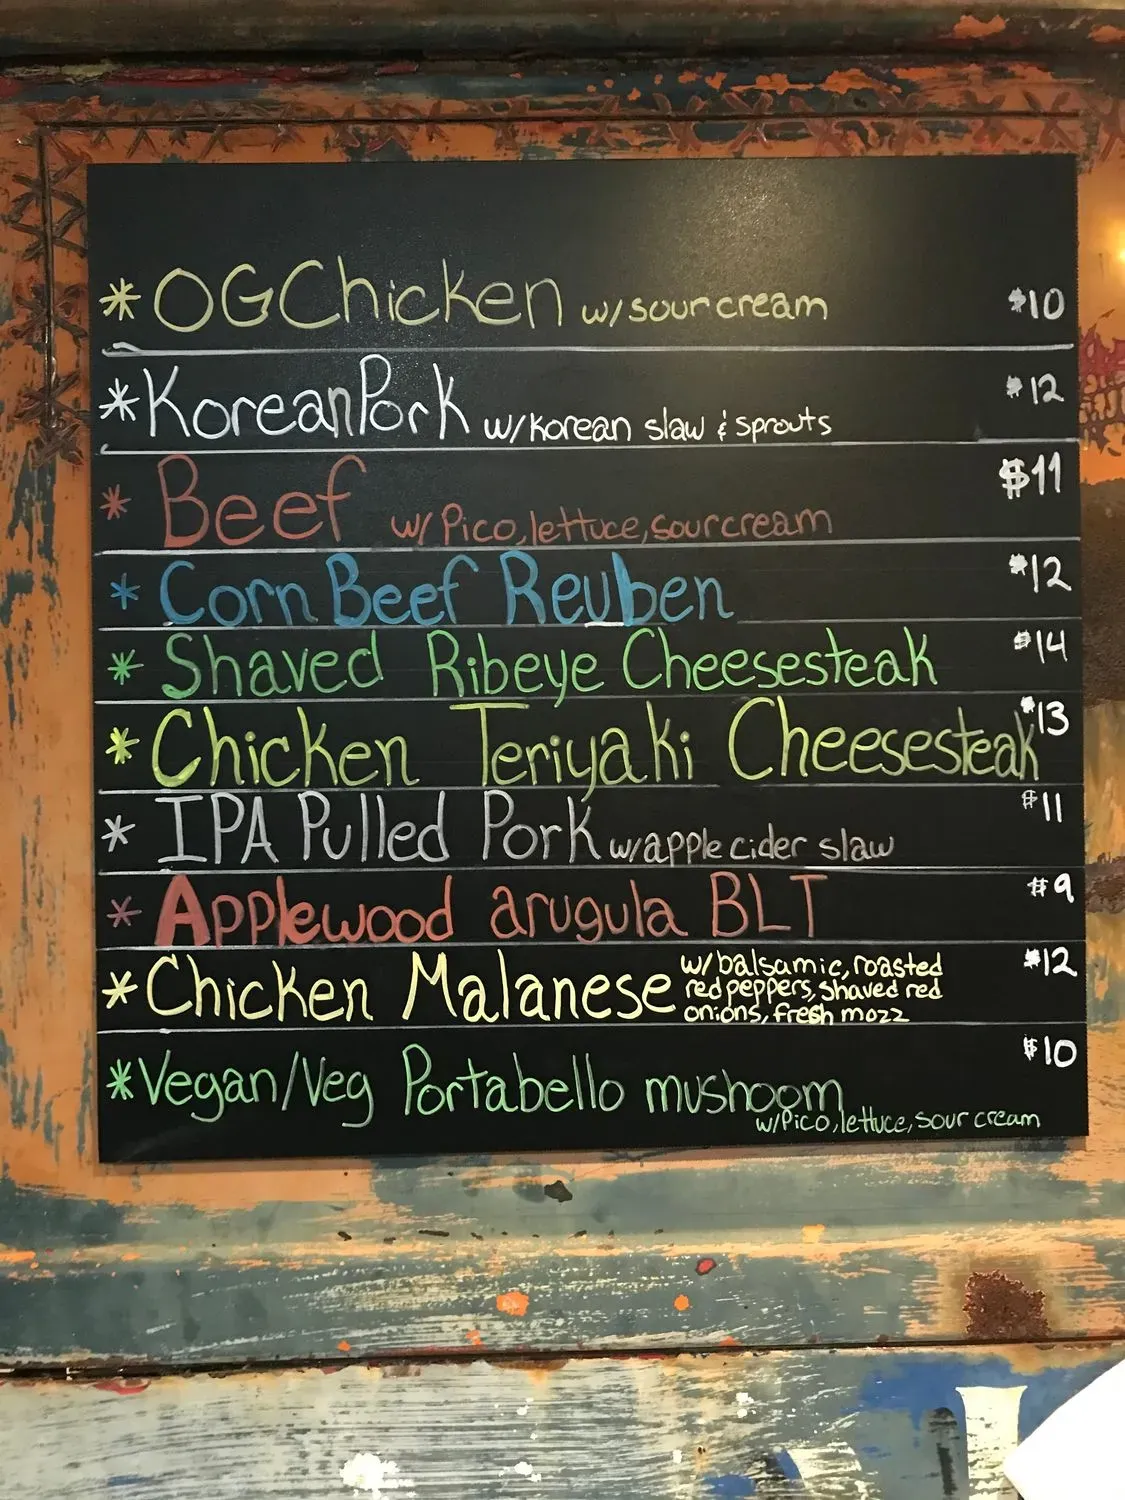 * OG Chicken w/sour cream $10
* Korean Pork w/korean slaw & sprouts $12
* Beef w/ Pico, lettuce, sour cream $11
* Corn Beef Reuben $12
* Shaved Ribeye Cheesesteak $14
* Chicken Teriyaki Cheesesteak $13
* IPA Pulled Pork w/apple cider slaw $11
* Applewood arugula BLT $9
* Chicken Malanese w/balsamic, roasted
red peppers, shaved red
onions, fresh mozz $12
* Vegan/Veg Portabello mushoom $10
w/Pico, lettuce, sour cream